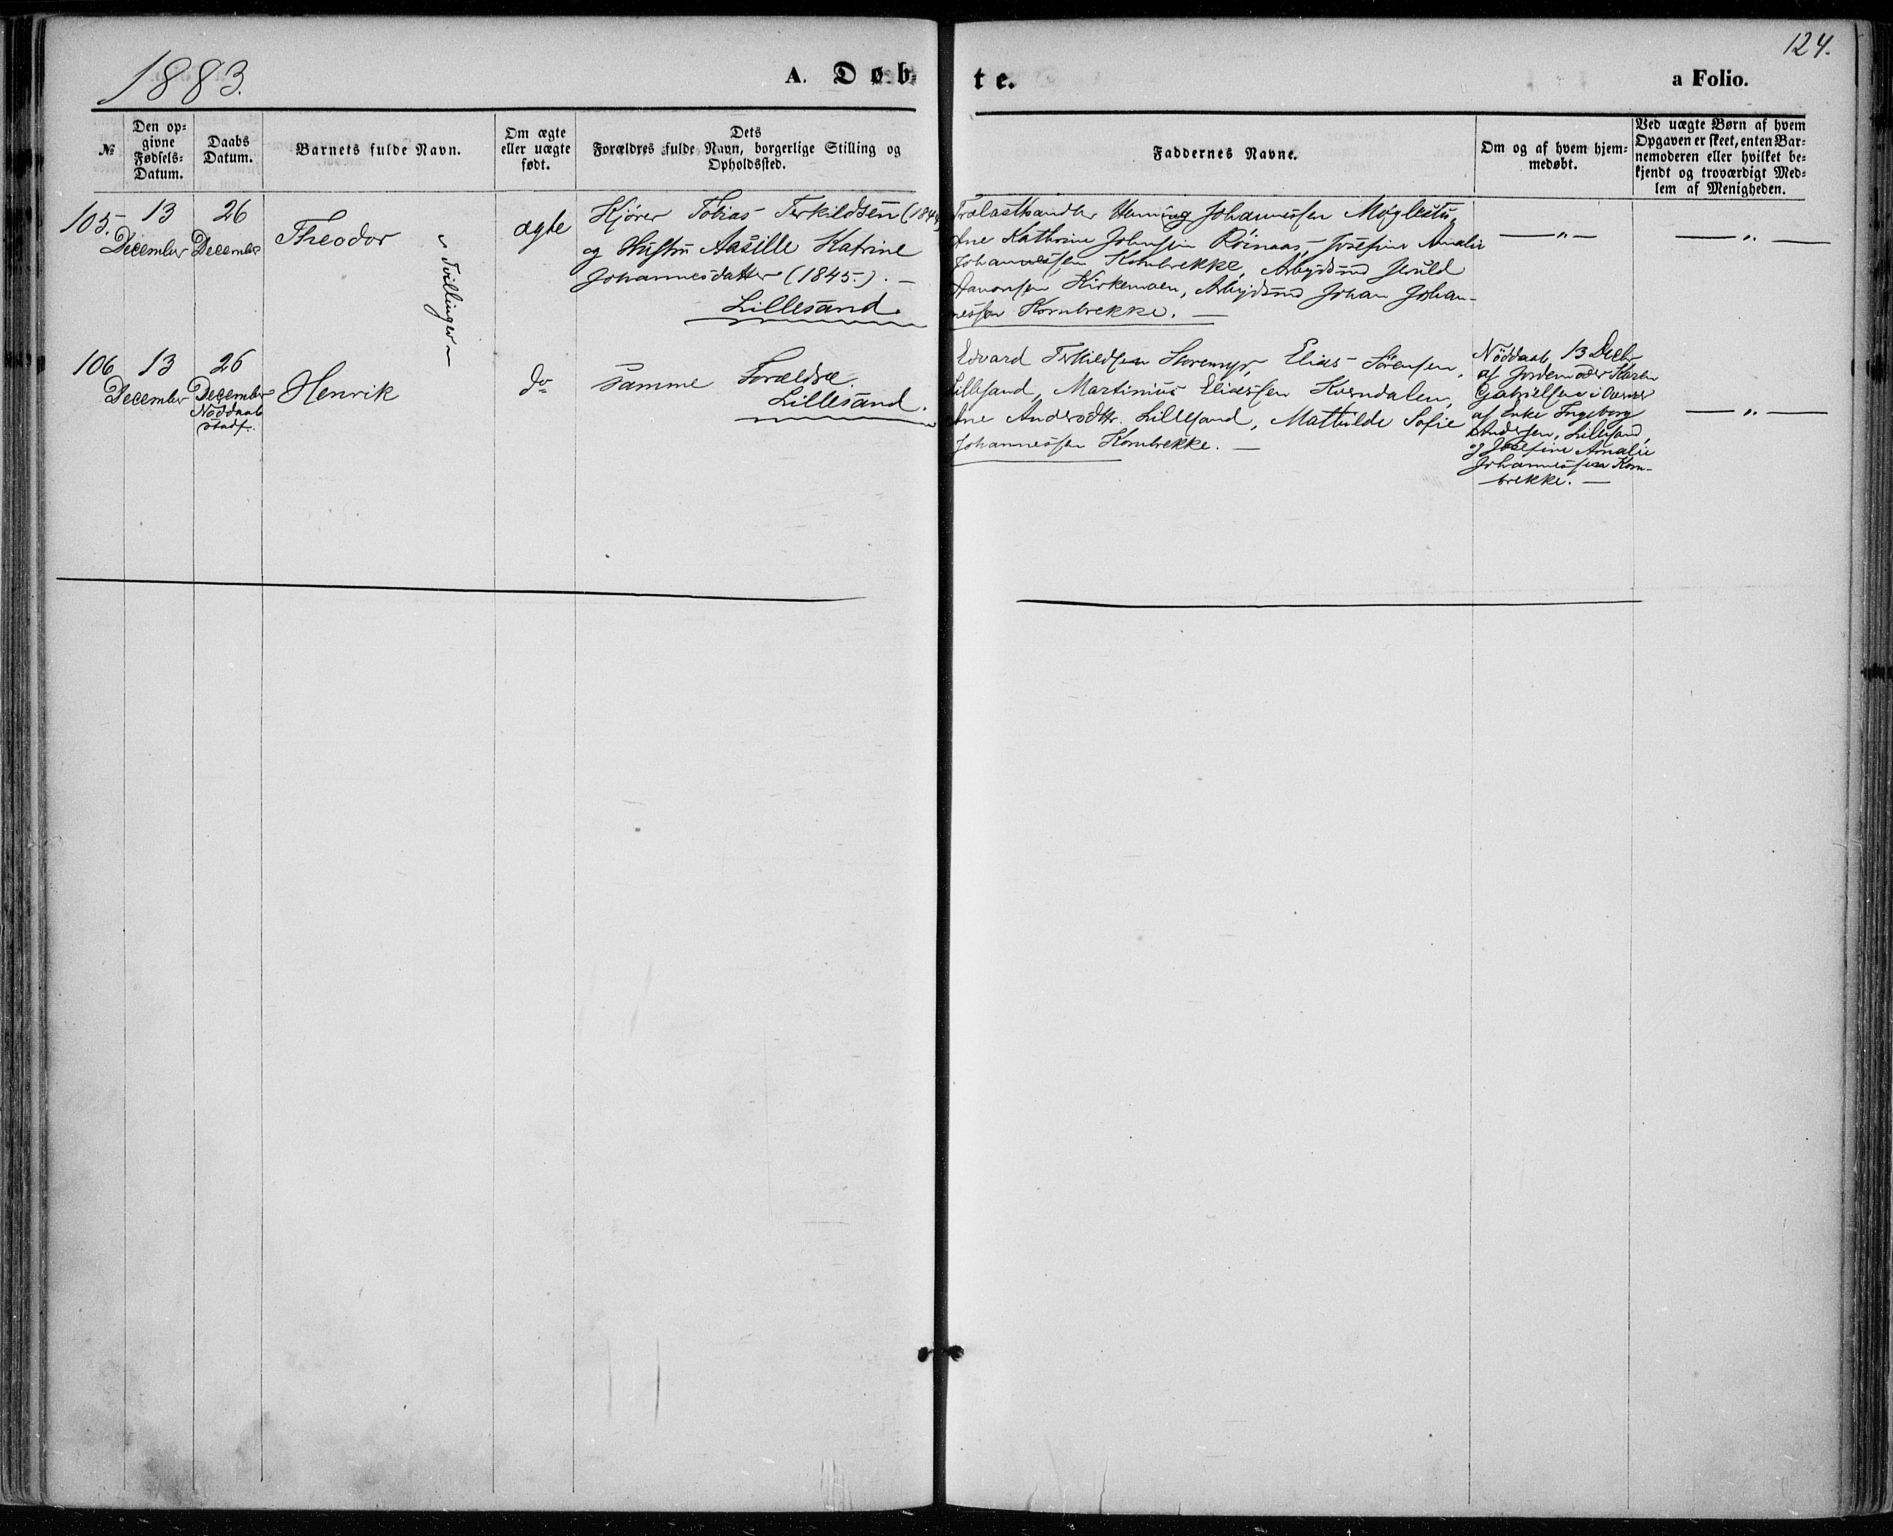 1883.
A. Døb-
te.
a Folio.
124.
№
Den op-
givne
Fødsels-
Datum.
Daabs
Datum.
Barnets fulde Navn.
Om ægte
eller uægte
født.
Dets
Forældres fulde Navn, borgerlige Stilling og
Opholdssted.
Faddernes Navne.
Om og af hvem hjem-
medøbt.
Ved uægte Børn af hvem
Opgaven er skeet, enten Bar-
nemoderen eller hvilket be-
kjendt og troværdigt Med-
lem af Menigheden.
105.
13
December
26
December
Theodor
Tvillinger
ægte
Kjører Tobias Terkildsen (184
og Hustru Aasille Katrine
Johannesdatter (1845). —
Lillesand
Trælasthandler Johannessen Møglestu,
Ane Kathrine Johnsen Røinaas, Josefine Amalie
Johannessen Kornbrekke, Arbejdsmd
Aanonsen Kirkemoen, Arbejdsmd Johan Johan-
nessen Kornbrekke. —
— " —
— " —
106
13
December
26
December
Nøddaab
stadf.
Henrik
do
Samme Forældre.
Lillesand.
Edvard Terkildsen Storemyr, Elias Sørensen,
Lillesand, Martinius Eliassen Kverndalen,
Ane Andersdtr. Lillesand, Mathilde Sofie
Johannessen Kornbrekke. —
Nøddaab 13 Decbr
af Jordemoder Karen
Gabrielsen i Overvær
af Enke Ingeborg
Andersen, Lillesand,
og Josefine Amalie
Johannessen Korn-
brekke. —
— " —